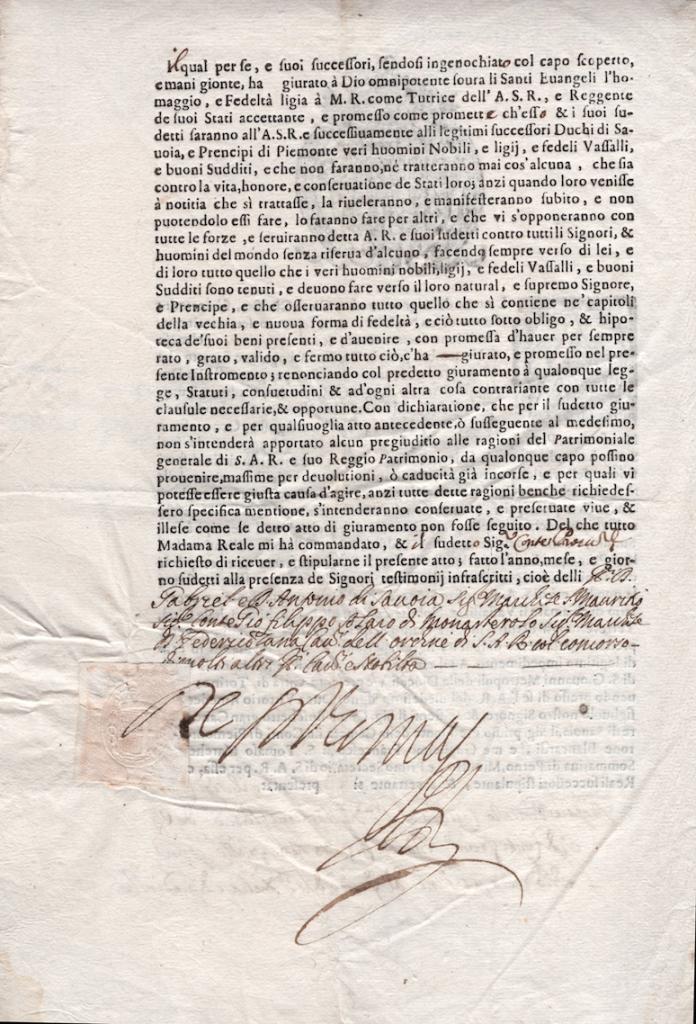 ilqual per se, e suoi successori, sendosi ingenochiato col capo scoperto,
e mani gionte, ha giurato à Dio omnipotente soura li Santi Euangeli l'ho-
maggio, e Fedeltà ligia à M. R. come Tutrice dell'A. S. R., e Reggente
de suoi Stati accettante, e promesso come promette ch'esso & i suoi su-
detti saranno all'A.S.R. e successiuamente alli legitimi successori Duchi di Sa-
uoia, e Prencipi di Piemonte veri huomini Nobili, e ligij, e fedeli Vassalli,
e buoni Sudditi, e che non faranno, né tratteranno mai cos'alcuna, che sia
contro la vita, honore, e conseruatione de Stati loro; anzi quando loro venisse
à notitia che sì trattasse, la riueleranno, e manifesteranno subito, e non
puotendolo essi fare, lo faranno fare per altri, e che vi s'opponeranno con
tutte le forze, e seruiranno detta A. R. e suoi sudetti contro tutti li Signori, &
huomini del mondo senza riserua d'alcuno, facendo sempre verso di lei, e
di loro tutto quello che i veri huomini nobili, ligij, e fedeli Vassalli, e buoni
Sudditi sono tenuti, e deuono fare verso il loro natural, e supremo Signore,
e Prencipe, e che osseruaranno tutto quello che sì contiene ne' capitoli
della vechia, e nuoua forma di fedeltà, e ciò tutto sotto obligo, & hipo-
teca de' suoi beni presenti, e d'auenire, con promessa d'hauer per sempre
rato, grato, valido, e fermo tutto ciò, c'ha — giurato, e promesso nel pre-
sente Instromento; renonciando col predetto giuramento à qualonque leg-
ge, Statuti, consuetudini & ad'ogni altra cosa contrariante con tutte le
clausule necessarie, & opportune. Con dichiaratione, che per il sudetto giu-
ramento, e per qualsiuoglia atto antecedente, ò susseguente al medesimo,
non s'intenderà apportato alcun pregiuditio alle ragioni del Patrimoniale
generale di S. A. R. e suo Reggio Patrimonio, da qualonque capo possino
prouenire, massime per deuolutioni, ò caducità già incorse, e per quali vi
potesse essere giusta causa d'agire, anzi tutte dette ragioni benche richiedes-
sero specifica mentione, s'intenderanno conseruate, e preseruate viue, &
illese come se detto atto di giuramento non fosse seguito. Del che tutto
Madama Reale mi hà commandato, & il sudetto Sig.r Conte
richiesto di riceuer, e stipularne il presente atto; fatto l'anno, mese, e gior-
no sudetti alla presenza de Signori testimonij infrascritti, cioè delli
Gabriel e D. Antonio di Sauoia, Sig. Marchese S. Mauritio
Sig. Conte Gio Filippo Solaro di Monasterolo Sig. Marchese
D. Federico Tana Cau. dell'ordine di S. A. R. col concorso
di molti altri Cau. e Nobiltà —
De